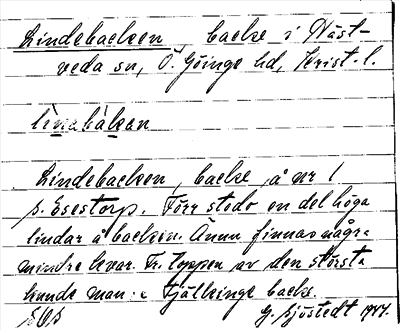 Lindebacken, backe i Näst-
veda sn, Ö. Göinge hd, Krist. l.
linabakan
Lindebacken, backe å nr 1
s. Esestorp. Förr stodo en del höga
lindar å backen. Ännu finnas några
mindre kvar. Fr. toppen av den största
kunde man se Fjällkinge backe.
G. Sjöstedt 1947.